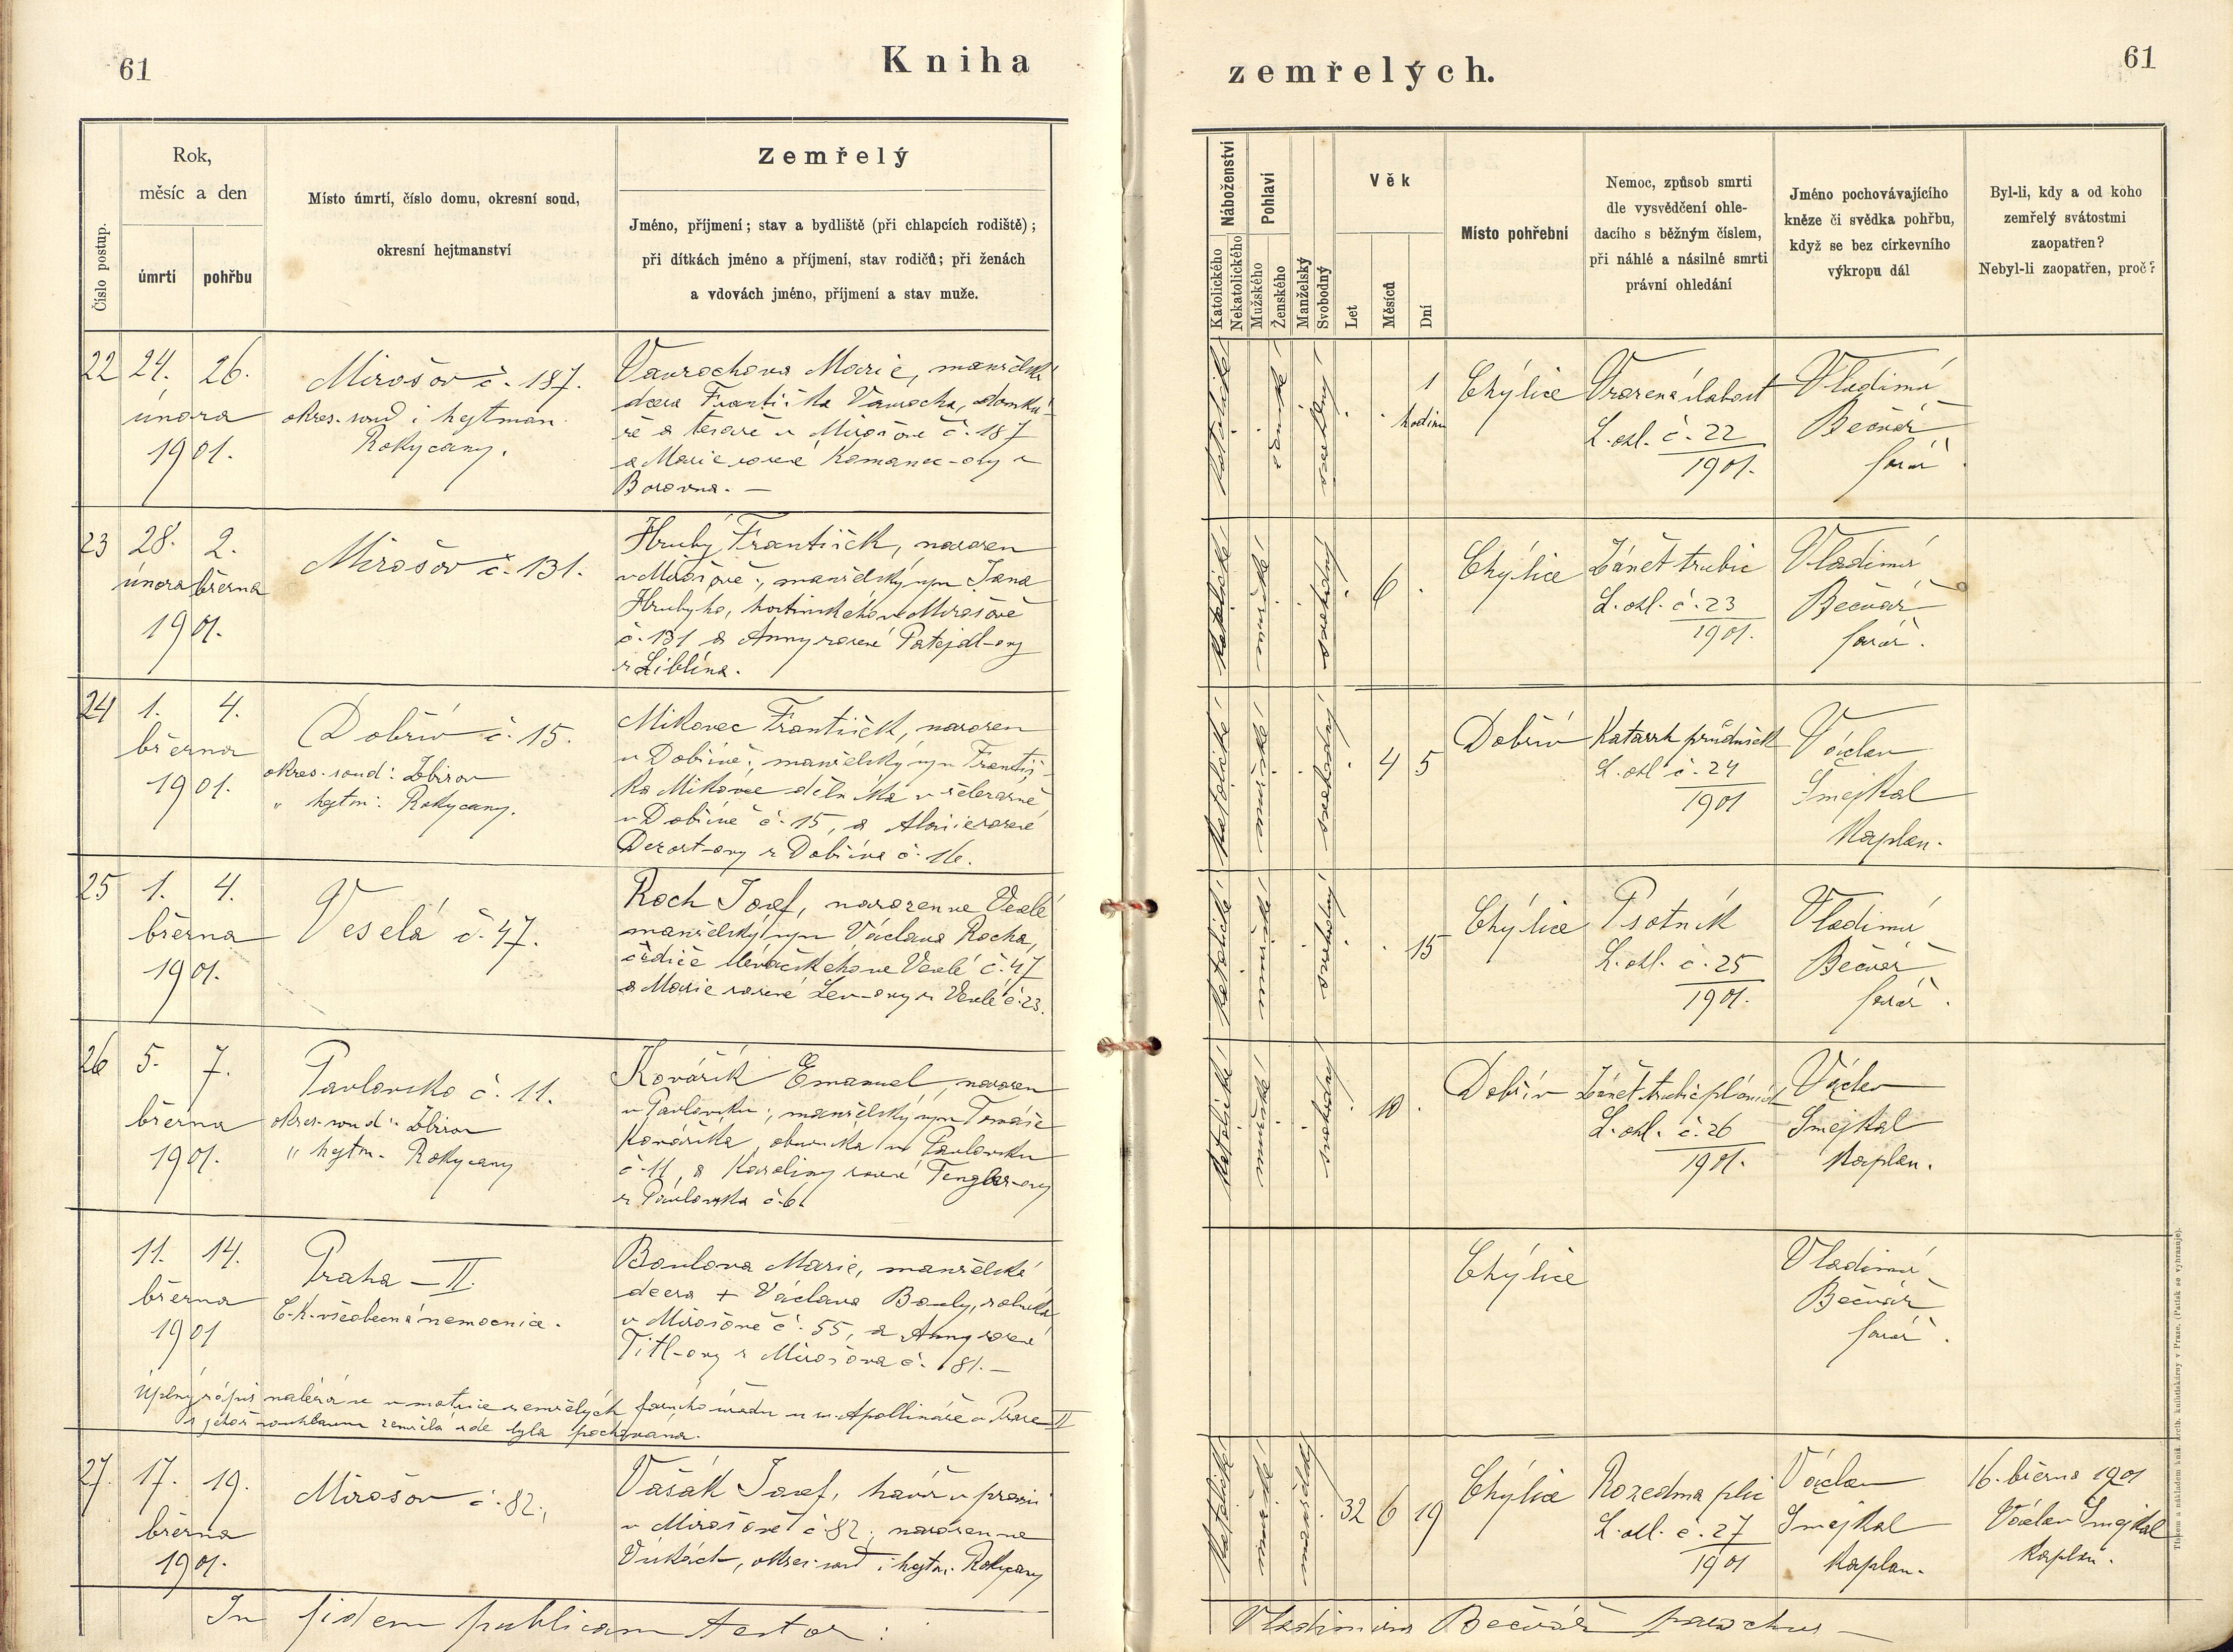 61
Kniha
zemřelých.
61
Číslo postup.
Rok,
měsíc a den
úmrtí
pohřbu
Místo úmrtí, číslo domu, okresní soud,
okresní hejtmanství
Zemřelý
Jméno, příjmení; stav a bydliště (při chlapcích rodiště);
při dítkách jméno a příjmení, stav rodičů; při ženách
a vdovách jméno, příjmení a stav muže.
Náboženství
Katolického
Nekatolického
Pohlaví
Mužského
Ženského
Manželský
Svobodný
Věk
Let
Měsíců
Dní
Místo pohřební
Nemoc, způsob smrti
dle vysvědčení ohle-
dacího s běžným číslem,
při náhlé a násilné smrti
právní ohledání
Jméno pochovávajícího
kněze či svědka pohřbu,
když se bez církevního
výkropu dál
Byl-li, kdy a od koho
zemřelý svátostmi
zaopatřen?
Nebyl-li zaopatřen, proč?
22
24. 26.
února
1901.
Mirošov č. 187.
okres. soud i hejtman.
Rokycany.
Vavrochova Marie, manželská
dcera Františka Vavrocha, domká-
ře a tesaře v Mirošově č. 187
a Marie rozené Komanec-ovy z
Borovna. —
katolické
ženské
svobodný
1
hodinu
Chýlice
Vrozená slabost
L. ohl. č. 22
1901.
Vladimír
Bečvář
farář.
23
28. 2.
února března
1901.
Mirošov č. 131.
Hrubý František, narozen
v Mirošově; manželský syn Jana
Hrubýho, hostinského v Mirošově
č. 131 a Anny rozené Patejdl-ovy
z Liblína.
katolické
mužské
svobodný
6
Chýlice
Zánět trubic
L. ohl. č. 23
1901.
Vladimír
Bečvář
farář.
24
1. 4.
března
1901.
Dobřív č. 15.
okres. soud: Zbirov
" hejtm: Rokycany.
Mikovec František, narozen
v Dobřívě; manželský syn Františ-
ka Mikovce dělníka v železárně
v Dobřívě č. 15, a Aloisie rozené
Dezort-ovy z Dobříva č. 16.
katolické
mužské
svobodný
4 5
Dobřív
Katarrh průdušek
L. ohl č. 24
1901
Václav
Smejkal
kaplan.
25
1. 4.
března
1901.
Veselá č. 47.
Roch Josef, narozen ve Veselé
manželský syn Václava Rocha,
ve Veselé č. 47
a Marie rozené Lev-ovy z Veselé č. 23.
katolické
mužské
svobodný
15
Chýlice
Psotník
L. ohl. č. 25
1901.
Vladimír
Bečvář
farář.
26
5. 7.
března
1901.
Pavlovsko č. 11.
okres. soud: Zbirov
" hejtm. Rokycany
Kovářík Emanuel, narozen
v Pavlovsku; manželský syn Tomáše
Kováříka, obuvníka v Pavlovsku
č. 11, a Karoliny rozené Tengler-ovy
z Pavlovska č. 6.
katolické
mužské
svobodný
10
Dobřív
Zánět trubic plicních
L. ohl. č. 26
1901.
Václav
Smejkal
kaplan.
11. 14.
března
1901
Praha — II.
C. k. všeobecná nemocnice.
Boulova Marie, manželská
dcera + Václava Bouly, rolníka
v Mirošově č. 55, a Anny rozené
Titl-ovy z Mirošova č. 81. —
Chýlice
Vladimír
Bečvář
farář.
Úplný zápis nalézá se v matrice zemřelých farního úřadu u sv. Apollináře v Praze II
s jehož souhlasem zemřelá zde byla pochována.
27.
17. 19.
března
1901.
Mirošov č. 82;
Vašák Josef, havíř
v Mirošově č 82; narozen ve
Vískách, okres. soud i hejtm. Rokycany
katolické
mužské
manželský
32 6 19
Chýlice
Rozedma plic
L. ohl. č. 27
1901
Václav
Smejkal
kaplan.
16. března 1901
Václav Smejkal
kaplan.
In fidem publicam testor:
Vladimirus Bečvář parochus —
Tiskem a nákladem kníž. arcib. knihtiskárny v Praze. (Patisk se vyhrazuje).